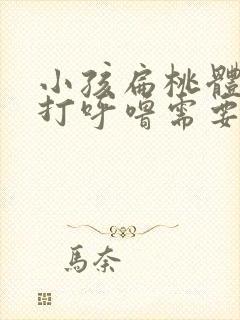 小孩扁桃體
打呼嚕需要
馬奈